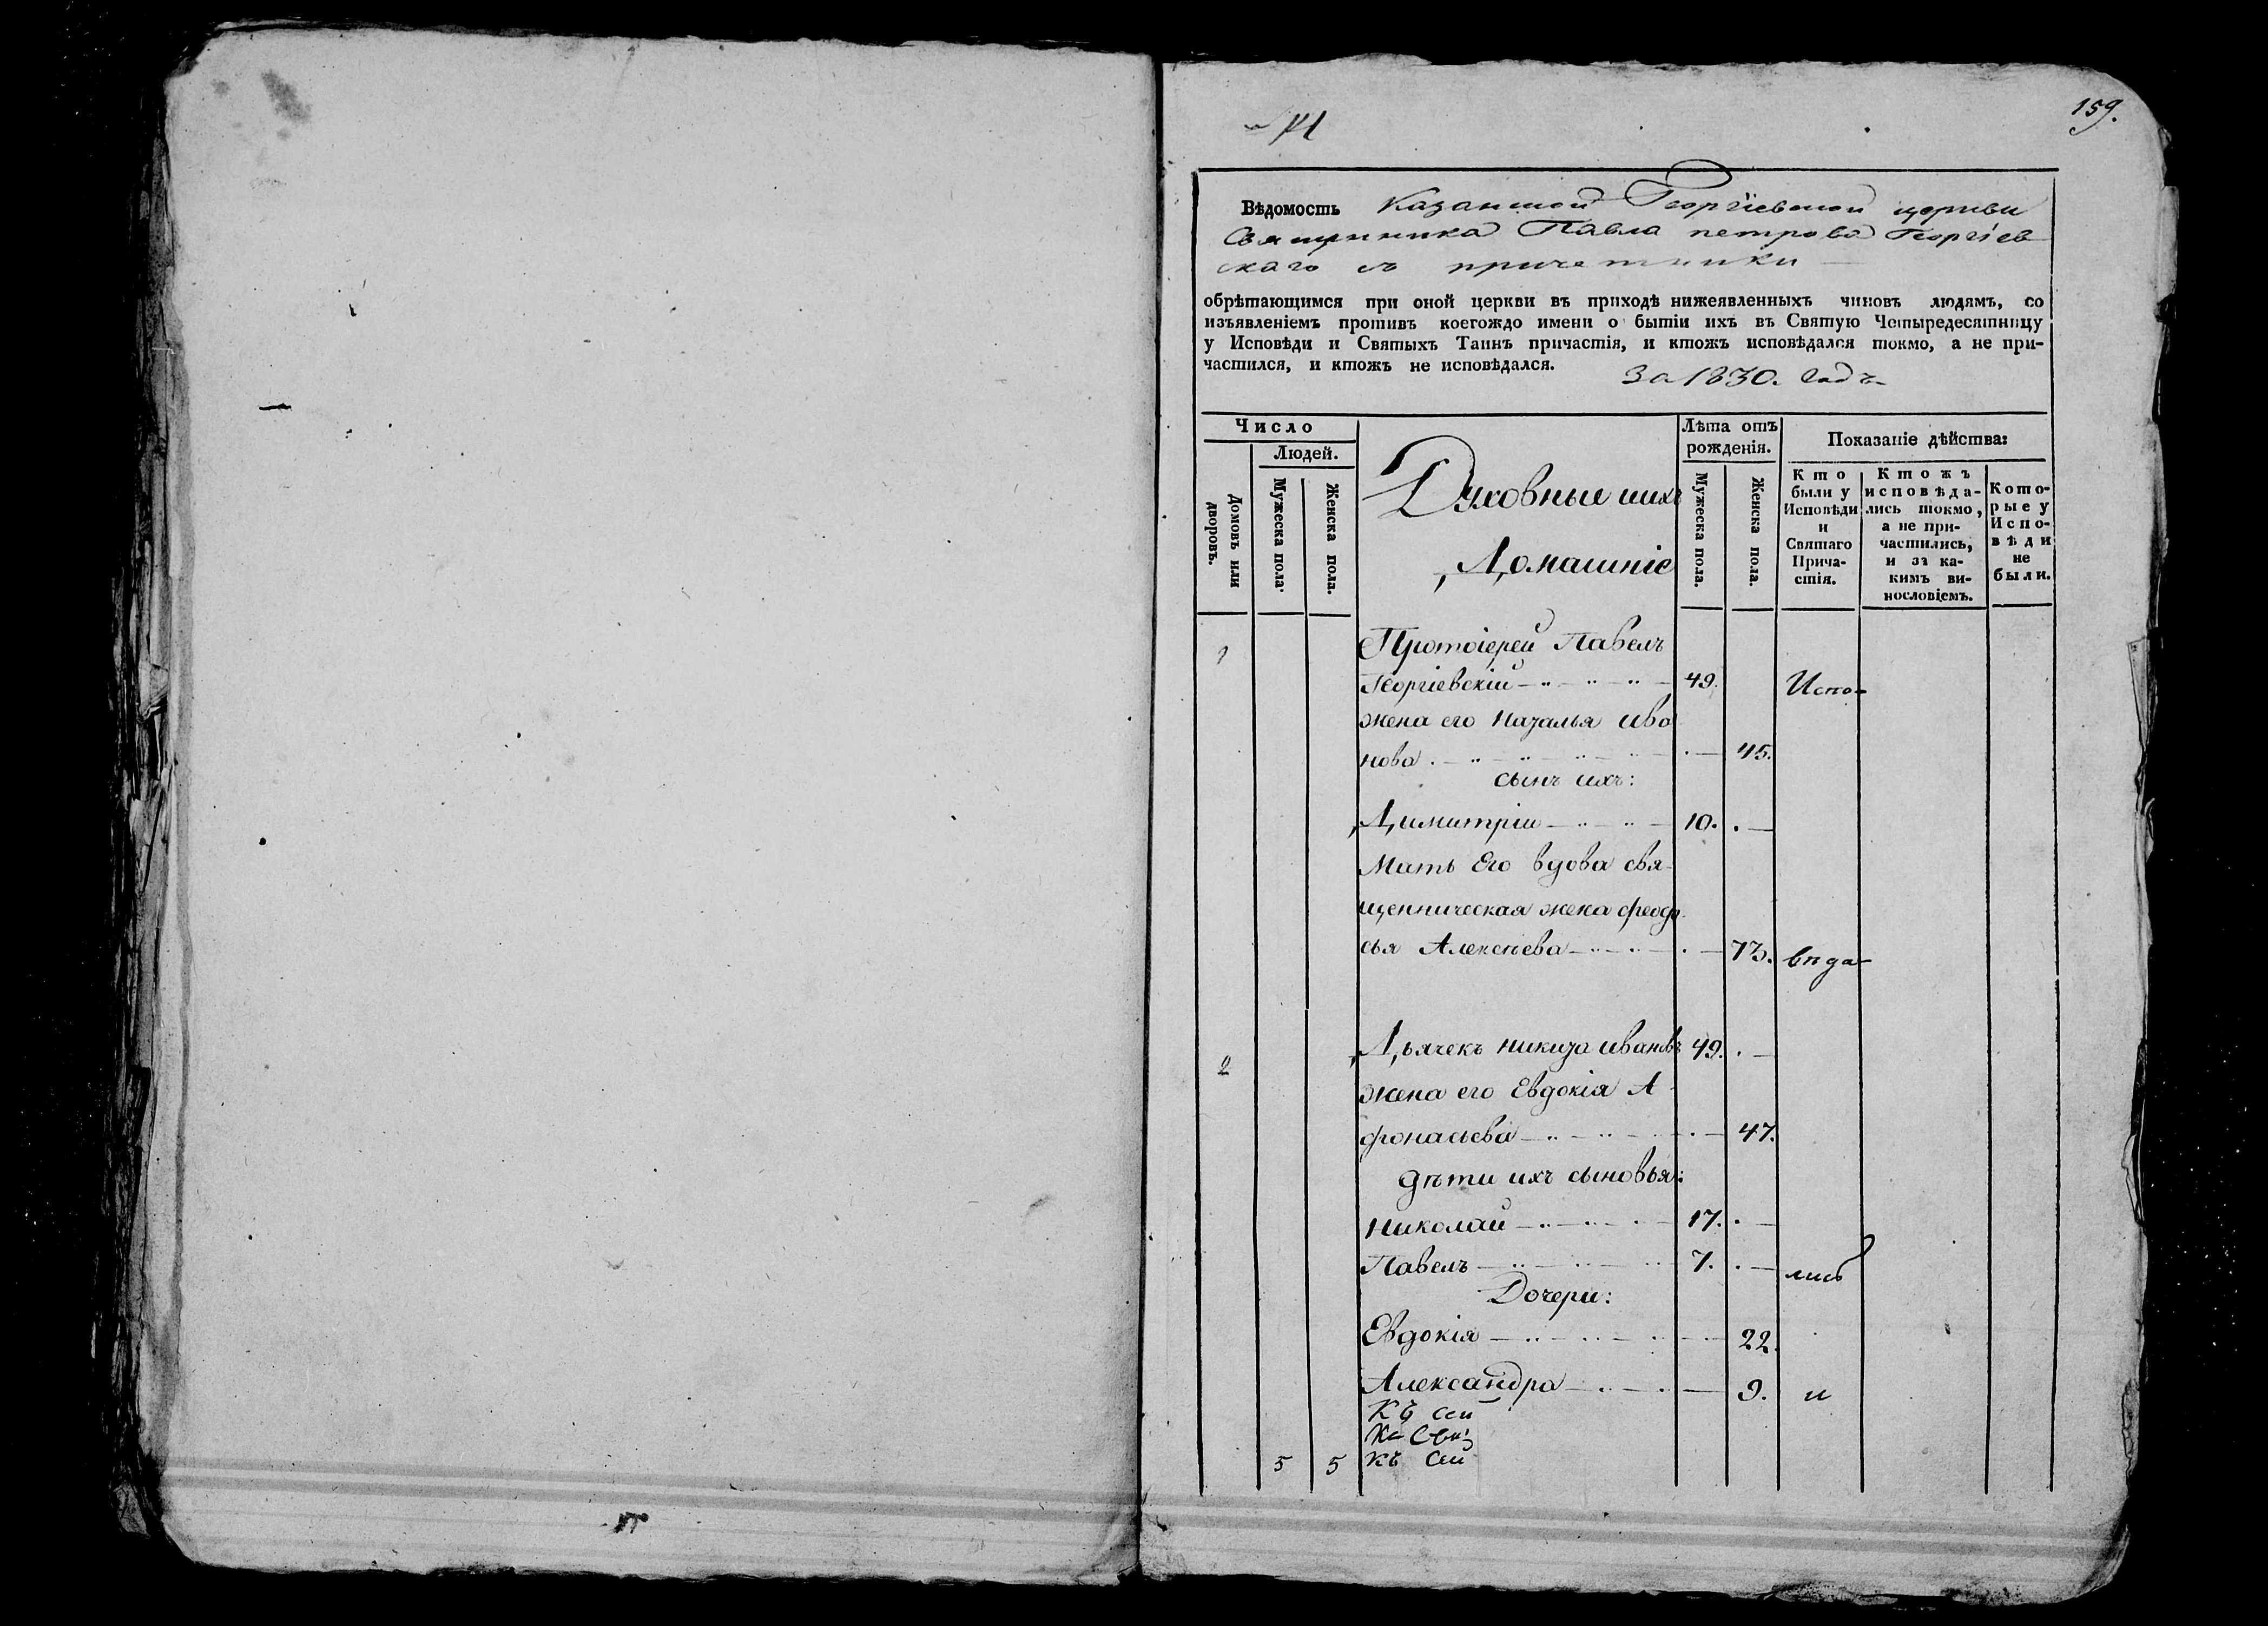 159.
Вѣдомость Казанской Георгіевской церкви
Священника Павла петрова Георгіев
скаго съ причетники
обрѣтающимся при оной церкви въ приходѣ нижеявленныхъ чиновъ людямъ, со
изъявленіемъ противъ коегождо имени о бытіи ихъ въ Святую Четыредесятницу
у Исповѣди и Святыхъ Таинъ причастія, и ктожъ исповѣдался токмо, а не при-
частился, и ктожъ не исповѣдался.
За 1830. годъ
Число
Людей.
Домовъ или
дворовъ.
Мужеска пола.
Женска пола.
Духовные иихъ
Домашніе
Лѣта отъ
рожденія.
Мужеска пола.
Женска пола.
Показаніе дѣйства:
Кто
были у
Исповѣди
и
Святаго
Прича-
стія.
Ктожъ
исповѣда-
лись токмо,
а не при-
частились,
и за ка-
кимъ ви-
нословіемъ.
Кото-
рые у
Испо-
вѣди
не
были.
1 Протоіерей Павелъ
Георгіевскій 49. Испо-
жена его Наталья Ива
нова 45.
сынъ ихъ:
Димитрій 10.
Мать Его вдова свя-
щенническая жена феодо
сья Алексѣева 73. вѣда
2 Дьячекъ никита ивановъ 49.
жена его Евдокія А
фонасьева 47.
дѣти ихъ сыновья:
Николай 17.
Павелъ 7. лись
Дочери:
Евдокія 22.
Александра 9. и
Къ сей
5 5 Къ Сей